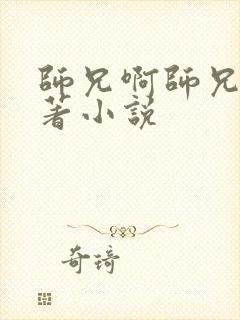 師兄啊師兄
著小説
奇琦